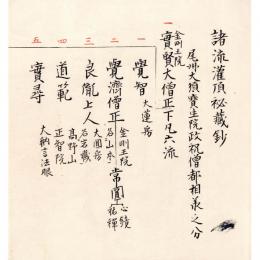 諸流灌頂秘蔵鈔
尾州大須寳生院政祝僧都相羕之分
一
金剛王院
實賢大僧正下凡六流
一
覺智
大蓮房
二
覺濟僧正
金剛王院
石山
常圓
心続
三
良胤上人
大圓房
岩蔵
四
道範
髙野山
正智院
五
實尋
大納言法眼